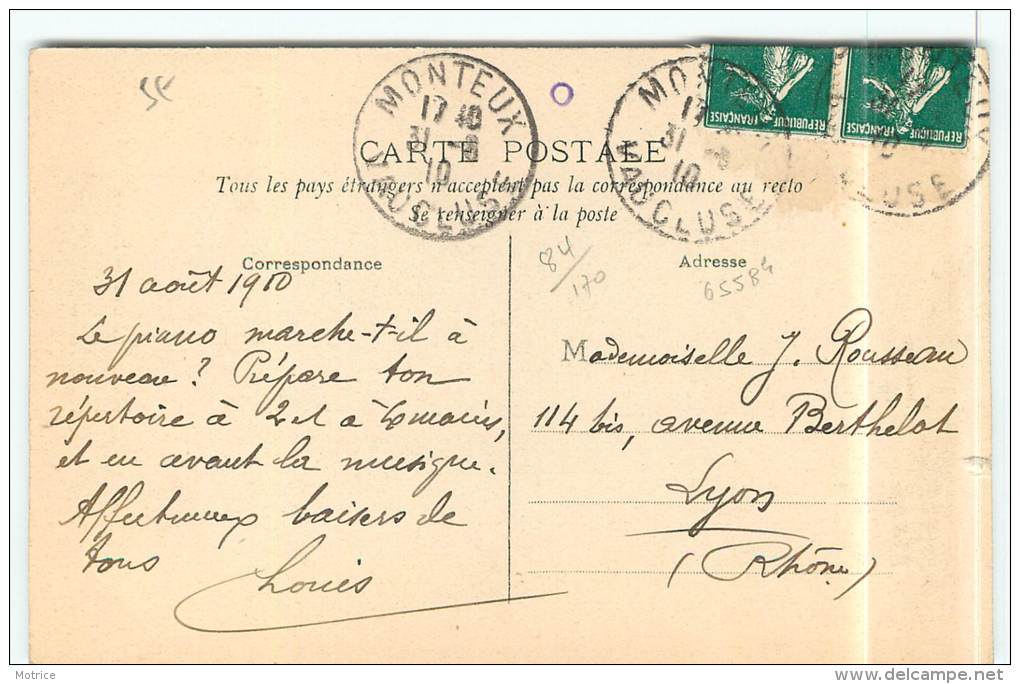 54
MONTEUX
17 10
31 -8
10
VAUCLUSE
MONTEUX
17
31 -8
10
VAUCLUSE
REPUBLIQUE FRANÇAISE
REPUBLIQUE FRANÇAISE
CARTE POSTALE
Tous les pays étrangers n'acceptent pas la correspondance au recto
Se renseigner à la poste
Correspondance
31 août 1910
Le piano marche-t-il à
nouveau ? Prépare ton
répertoire à 2 et à 4 mains,
et en avant la musique.
Affectueux baisers de
tous
Louis
84/170
Adresse
65584
Mademoiselle J. Rousseau
114 bis, avenue Berthelot
Lyon
(Rhône)
Motrice
www.delcampe.net